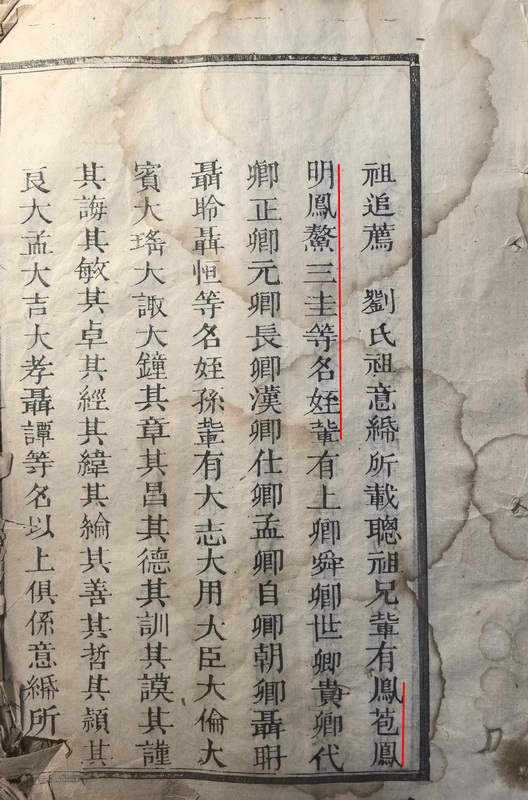 祖追薦　劉氏祖意綈所載聰祖兄輩有鳳苞鳳
明鳳鰲三圭等名姪輩有上卿舜卿世卿貴卿代
卿正卿元卿長卿漢卿仕卿孟卿自卿朝卿聶聑
聶聆聶恒等名姪孫輩有大志大用大臣大倫大
賓大瑤大諏大鐘其章其昌其德其訓其謨其謹
其誨其敏其卓其經其緯其綸其善其哲其頴其
良大孟大吉大孝聶譚等名以上俱係意綈所